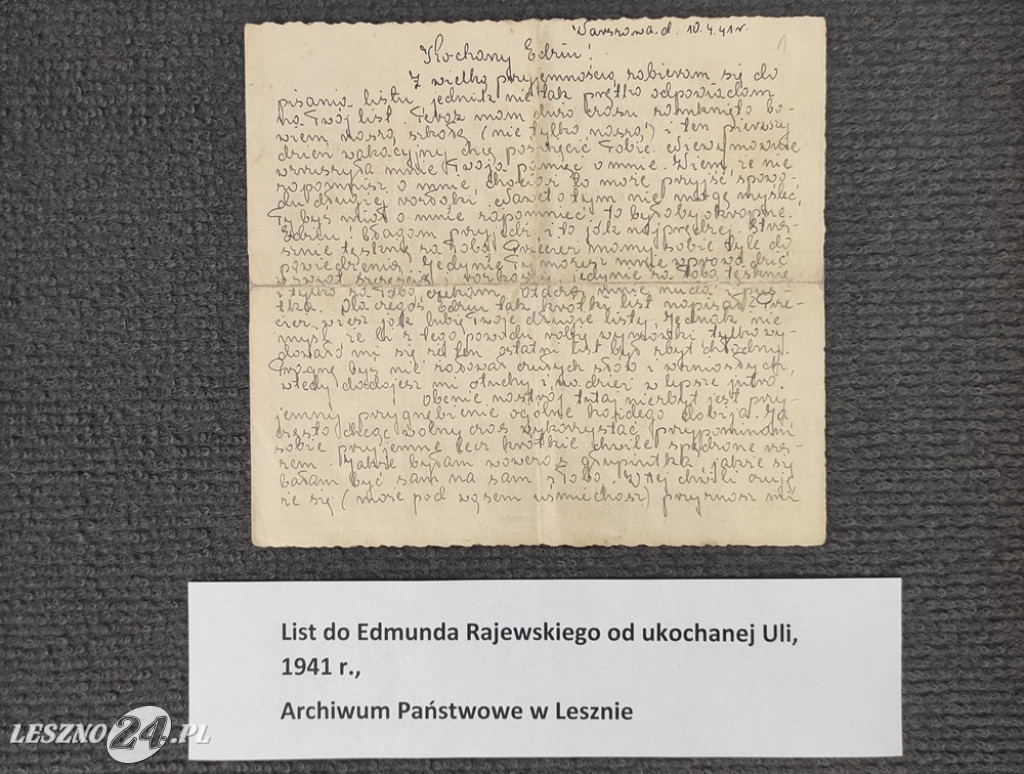 Warszawa d. 10.4.41r.
1
Kochany Edziu!
Z wielką przyjemnością zabieram się do
pisania listu jednak nie tak prętko odpowiadam
na Twój list. Teraz mam dużo czasu zamknięto bo-
wiem naszą szkołę (nie tylko naszą!) i ten pierwszy
dzień wakacyjny chcę poświęcić Tobie. Niewymownie
wzruszyła mnie Twoja pamięć o mnie. Wiem, że nie
zapomnisz o mnie, chociaż to może przyjść spowo-
du długiej rozłąki. Nawet o tym nie mogę myśleć,
Ty byś miał o mnie zapomnieć, to byłoby okropne.
Edziu! Błagam przyjedź i to jak najprędzej. Stra-
sznie tęsknię za Tobą. Przecież mamy sobie tyle do
powiedzenia. Jedynie Ty możesz mnie wprowadzić
w świat szczęścia i rozkoszy, jedynie za Tobą tęsknię
i tylko na Ciebie czekam. Otacza mnie nuda i pus-
tka. Dlaczegoś Edziu tak krótki list napisał? Prze-
cież wiesz jak lubię Twoje długie listy. Jednak nie
myśl, że Ci z tego powodu robię wymówki tylko wy-
dawało mi się, że ten ostatni list był zbyt chłodny.
Pragnę byś nie żałował czułych słów i wzniosłych,
wtedy dodajesz mi otuchy i nadziei w lepsze jutro.
Obecnie nastrój tutaj niezbyt jest przy-
jemny, przygnębienie ogólne każdego dobija. Ja
często chcąc wolny czas wykorzystać przypominam
sobie przyjemne lecz krótkie chwile spędzone ra-
zem. Jakże byłam wówczas głupiutka, jakże się
bałam być sam na sam z Tobą. W tej chwili
się (może pod wąsem uśmiechasz) przyznasz mi
List do Edmunda Rajewskiego od ukochanej Uli,
1941 r.,
Archiwum Państwowe w Lesznie
LESZNO24.PL